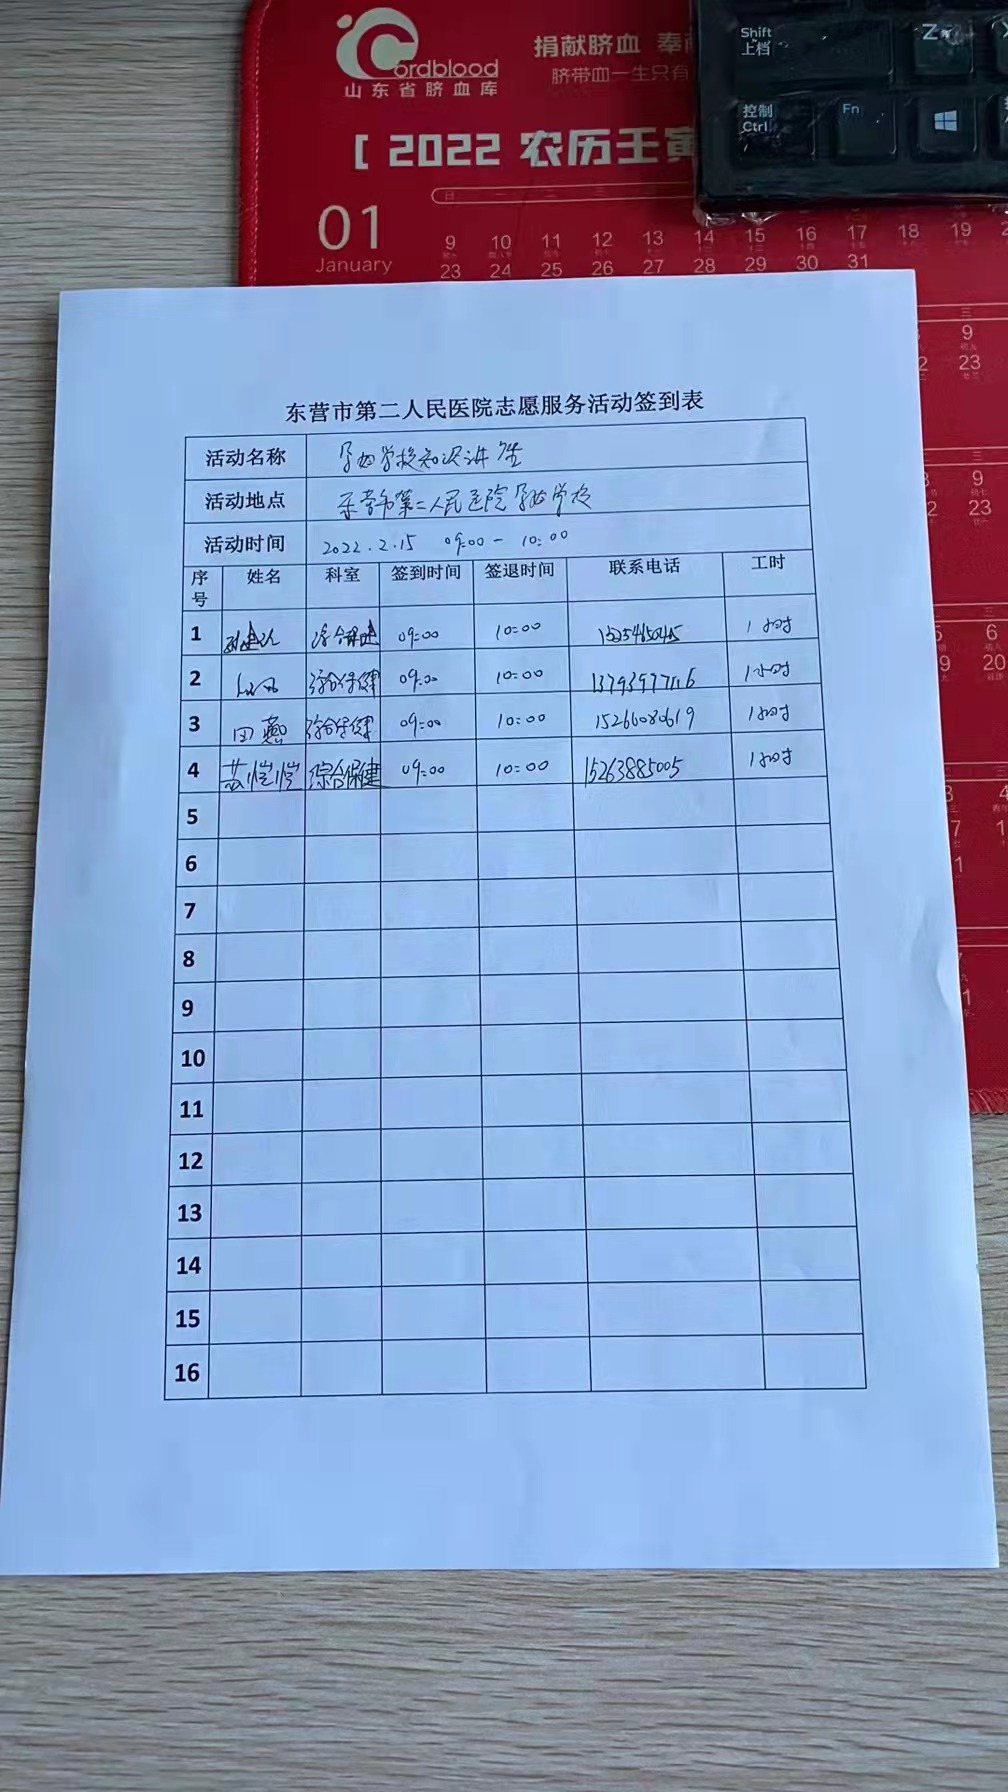 Cordblood
山东省脐血库
捐献脐血 奉
脐带血一生只有
[ 2022 农历壬寅
01
January
日 一 二 三
9 10 11 12 13 14 15 16 17 18 19
23 24 25 26 27 28 29 30 31
Shift
上档
Z
控制
Ctrl
Fn
东营市第二人民医院志愿服务活动签到表
活动名称 孕妇学校知识讲座
活动地点 东营市第二人民医院孕妇学校
活动时间 2022.2.15 09:00-10:00
序号 姓名 科室 签到时间 签退时间 联系电话 工时
1 综合保健 09:00 10:00 1小时
2 综合保健 09:00 10:00 13793977116 1小时
3 田燕 综合保健 09:00 10:00 15266080619 1小时
4 苏恺恺 综合保健 09:00 10:00 15263885005 1小时
5
6
7
8
9
10
11
12
13
14
15
16